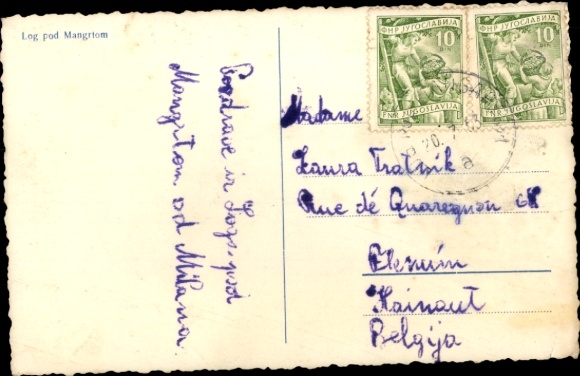 Log pod Mangrtom
Pozdrave iz Loga pod
Mangrtom od Milana.
ФНР ЈУГОСЛАВИЈА
10
FNR JUGOSLAVIJA
ФНР ЈУГОСЛАВИЈА
10
FNR JUGOSLAVIJA
20. 7.
a
Madame
Laura Tratnik
Rue dé Quaregnon
Hainaut
Belgija